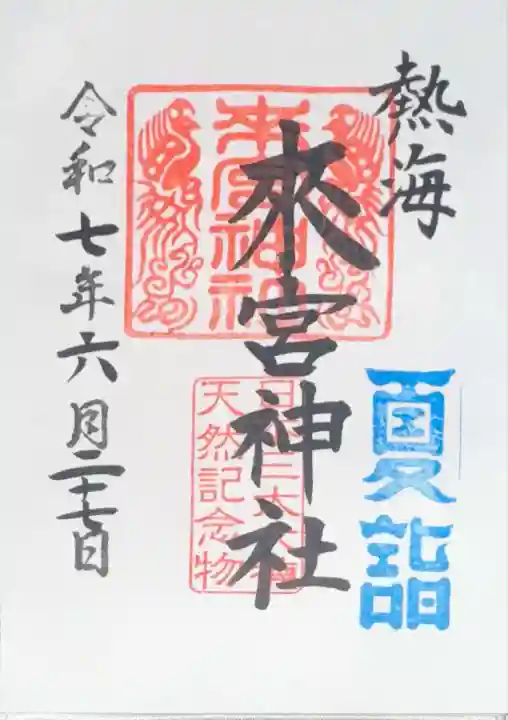 熱海
夏詣
來宮神社
來宮神社
天然記念物
令和七年六月二十七日